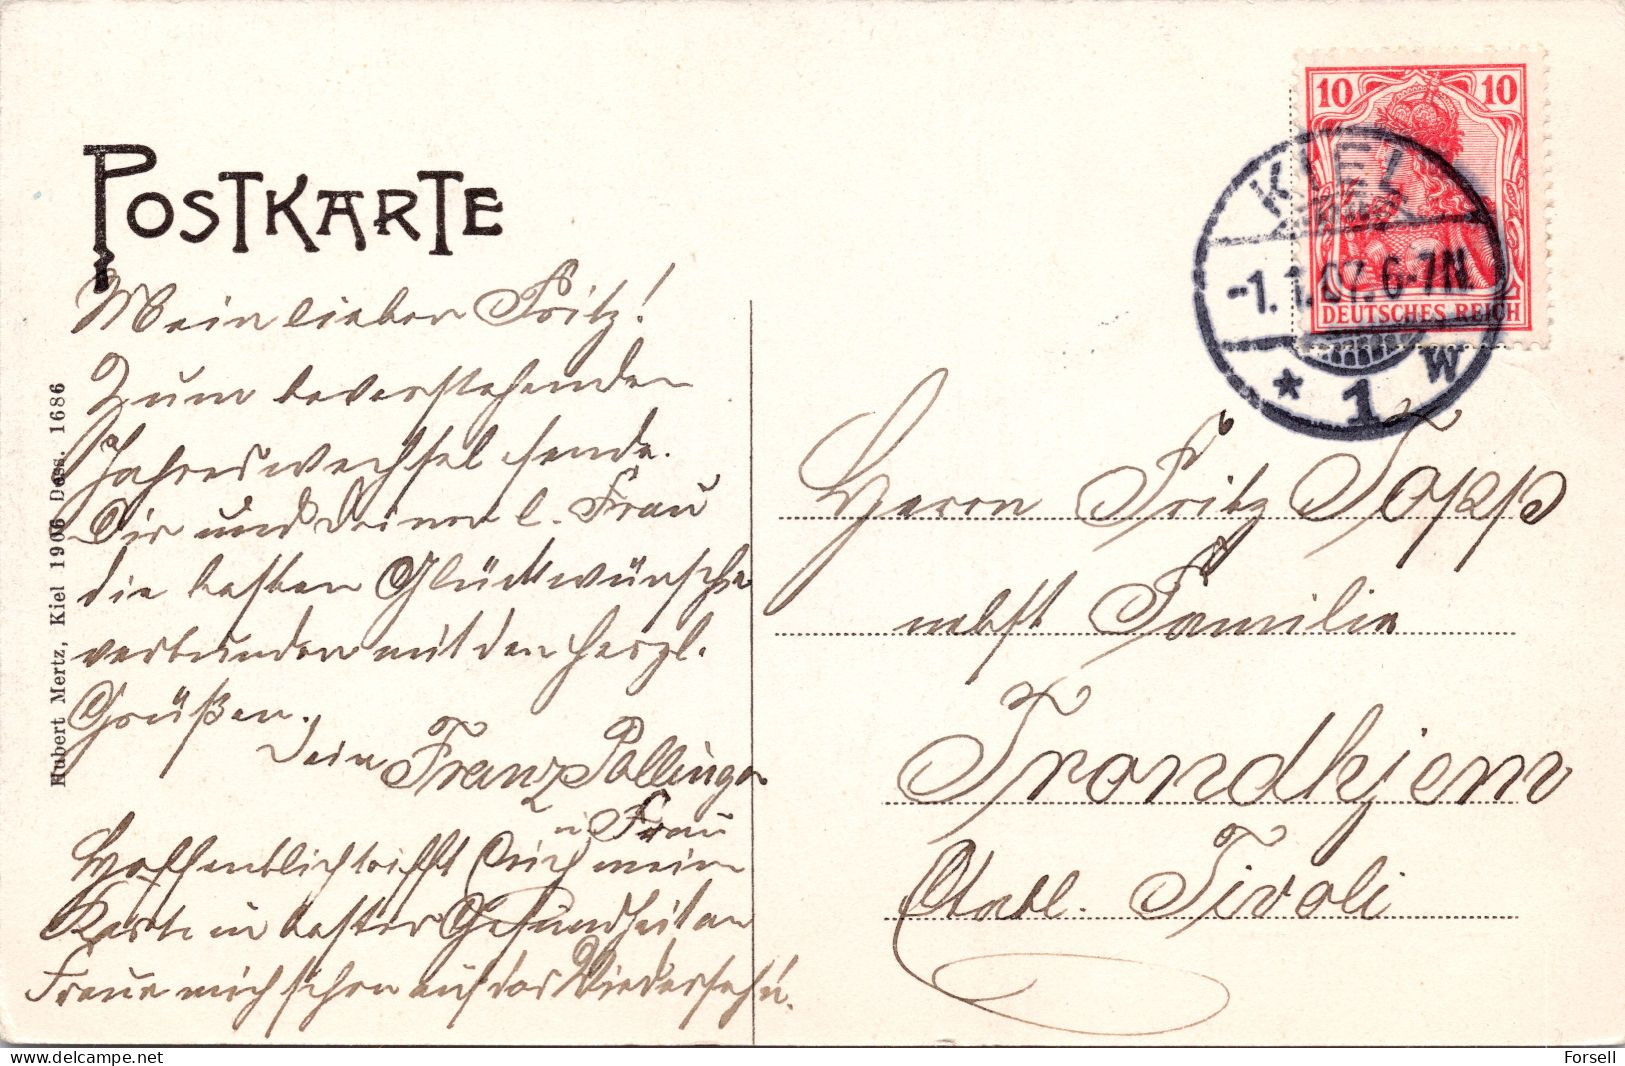 POSTKARTE
Mein lieber Fritz!
Zum bevorstehenden
Jahreswechsel sende
Dir und Deiner l. Frau
die besten Glückwünsche
verbunden mit den herzl.
Grüßen.
Dein Franz Pollinger
u. Frau
Hoffentlich trifft Dich meine
Karte in bester Gesundheit an
Freue mich schon auf das Wiedersehn.
Hubert Mertz, Kiel 1906 Dess. 1686
10 10
DEUTSCHES REICH
KIEL
-1.1.07.6-7N.
* 1 w
Herrn Fritz Topp
nebst Familie
Trondhjem
Etabl. Tivoli
Forsell
delcampe.net